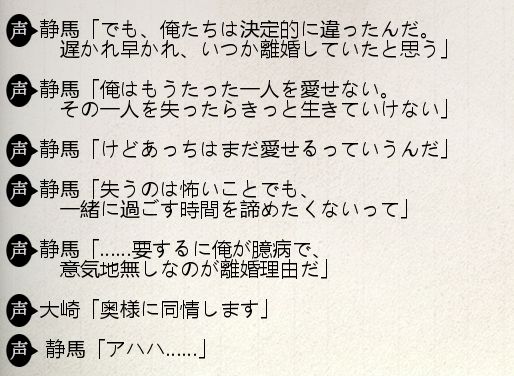 声 静馬「でも、俺たちは決定的に違ったんだ。
遅かれ早かれ、いつか離婚していたと思う」
声 静馬「俺はもうたった一人を愛せない。
その一人を失ったらきっと生きていけない」
声 静馬「けどあっちはまだ愛せるっていうんだ」
声 静馬「失うのは怖いことでも、
一緒に過ごす時間を諦めたくないって」
声 静馬「......要するに俺が臆病で、
意気地無しなのが離婚理由だ」
声 大崎「奥様に同情します」
声 静馬「アハハ......」